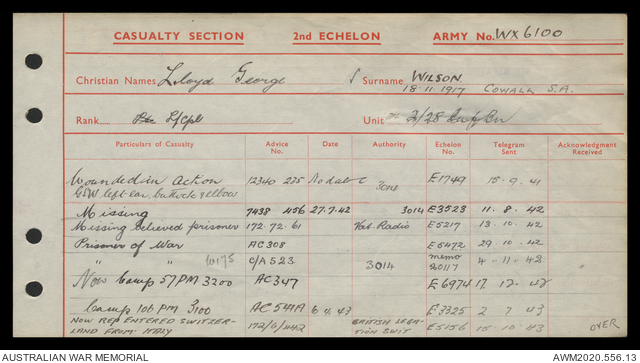 CASUALTY SECTION 2nd ECHELON ARMY No. WX6100
Christian Names Lloyd George Surname WILSON
18.11.1917 COWALL S.A.
Rank Pte L/Cpl Unit 2/28 Inf Bn
Particulars of Casualty Advice No. Date Authority Echelon No. Telegram Sent Acknowledgment Received
Wounded in action 12340 235 No date C 3014 E1749 15.9.41
GSW left ear, buttock & elbow
Missing 7438 456 27.7.42 3014 E3523 11.8.42
Missing believed prisoner 172.72.61 Vat. Radio E5217 13.10.42
Prisoner of War AC308 E5472 29.10.42
" " W175 C/A523 3014 memo 20117 4-11-42
Now Camp 57 PM 3200 AC347 E6974 17.12.42
Camp 106 PM 3100 AC541A 6.4.43 E3325 2.7.43
NOW REP ENTERED SWITZER- 172/6/442 BRITISH LEGA- E5156 15.10.43 OVER
LAND FROM ITALY TION SWIT
AUSTRALIAN WAR MEMORIAL AWM2020.556.13